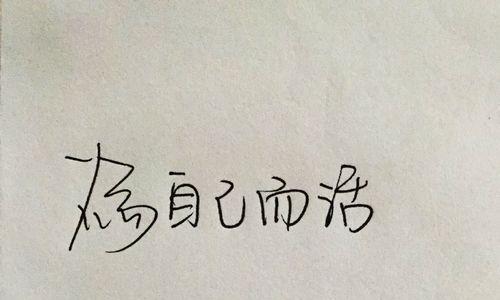 為自己而活